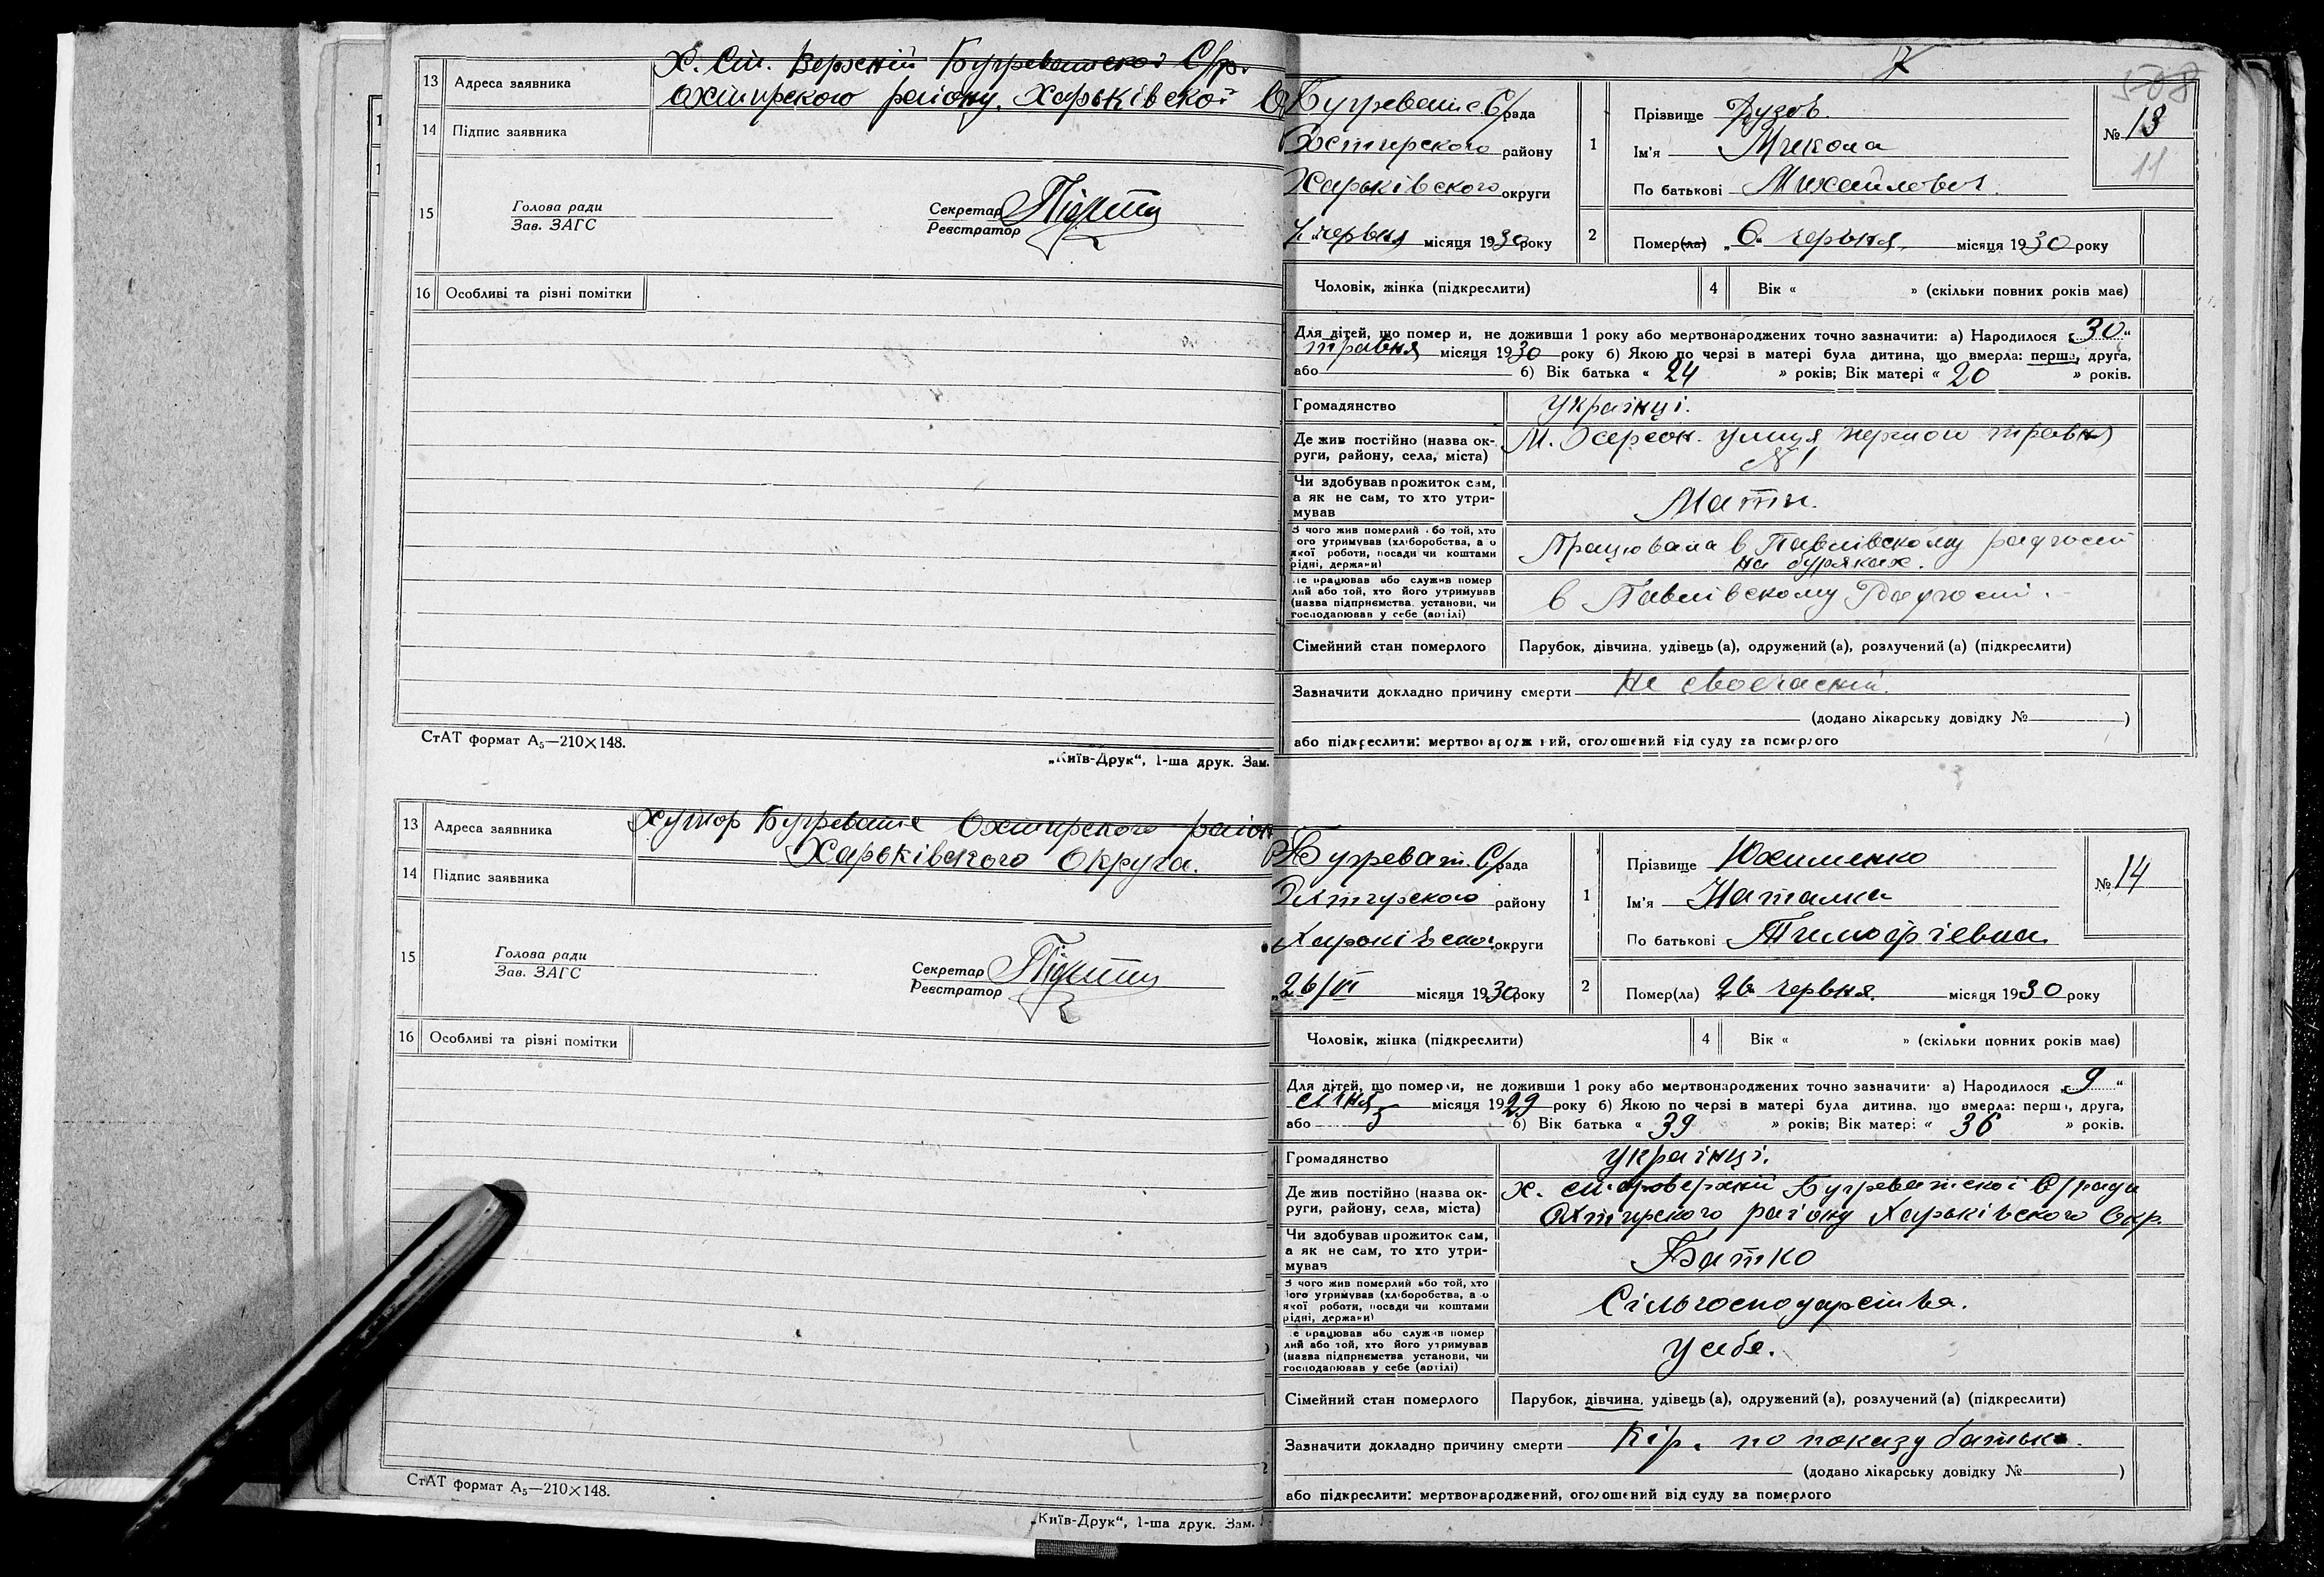 13 Адреса заявника Х. Ст. Верхній Бугреватской С/р.
Охтирского району. Харьківской О
14 Підпис заявника
15 Голова ради
Зав. ЗАГС
Секретар
Реєстратор
16 Особливі та різні помітки
СтАТ формат А₅—210×148.
„Київ-Друк“, 1-ша друк. Зам.
13 Адреса заявника Хутор Бугревате Охтирского район
Харьківского Округа.
14 Підпис заявника
15 Голова ради
Зав. ЗАГС
Секретар
Реєстратор
16 Особливі та різні помітки
СтАТ формат А₅—210×148.
„Київ-Друк“, 1-ша друк. Зам.
508
Бугреват С/рада
Охтирского району
Харьківского округи
7 червня місяця 1930 року
1 Прізвище
Ім'я Микола
По батькові Михайлович
№ 13
11
2 Помер(ла) „6“ червня місяця 1930 року
Чоловік, жінка (підкреслити) 4 Вік « » (скільки повних років має)
Для дітей, що померли, не доживши 1 року або мертвонароджених точно зазначити: а) Народилося „30“
травня місяця 1930 року б) Якою по черзі в матері була дитина, що вмерла: перша, друга,
або б) Вік батька « 24 » років; Вік матері « 20 » років.
Громадянство Українці.
Де жив постійно (назва ок-
руги, району, села, міста) М. Херсон. улиця першого травня
№ 1
Чи здобував прожиток сам,
а як не сам, то хто утри-
мував Мати.
З чого жив померлий або той, хто
його утримував (хліборобства, а о
якої роботи, посади чи коштами
рідні, держави) Працювала в Павлівскому радгоспі
на буряках.
Де працював або служив помер
лий або той, хто його утримував
(назва підприємства, установи, чи
господарював у себе (артілі) в Павлівскому Радгоспі.
Сімейний стан померлого Парубок, дівчина, удівець (а), одружений (а), розлучений (а) (підкреслити)
Зазначити докладно причину смерти Не своєчасний.
(додано лікарську довідку № )
або підкреслити: мертвонароджений, оголошений від суду за померлого
Бугреват. С/рада
Охтирского району
Харьківської округи
„26/VI місяця 1930 року
1 Прізвище Юхименко
Ім'я Наталка
По батькові Тимофієвна
№ 14
2 Помер(ла) 26 червня. місяця 1930 року
Чоловік, жінка (підкреслити) 4 Вік « » (скільки повних років має)
Для дітей, що померли, не доживши 1 року або мертвонароджених точно зазначити: а) Народилося „9“
січня місяця 1929 року б) Якою по черзі в матері була дитина, що вмерла: перша, друга,
або 5 б) Вік батька « 39 » років; Вік матері « 36 » років.
Громадянство Українці.
Де жив постійно (назва ок-
руги, району, села, міста) х. Бугреватскої С/ради
Охтирского району Харьківского Окр.
Чи здобував прожиток сам,
а як не сам, то хто утри-
мував Батко
З чого жив померлий або той, хто
його утримував (хліборобства, а о
якої роботи, посади чи коштами
рідні, держави) Сільгосподарства.
Де працював або служив помер
лий або той, хто його утримував
(назва підприємства, установи, чи
господарював у себе (артілі) У себе.
Сімейний стан померлого Парубок, дівчина, удівець (а), одружений (а), розлучений (а) (підкреслити)
Зазначити докладно причину смерти Кір. по показу батька.
(додано лікарську довідку № )
або підкреслити: мертвонароджений, оголошений від суду за померлого